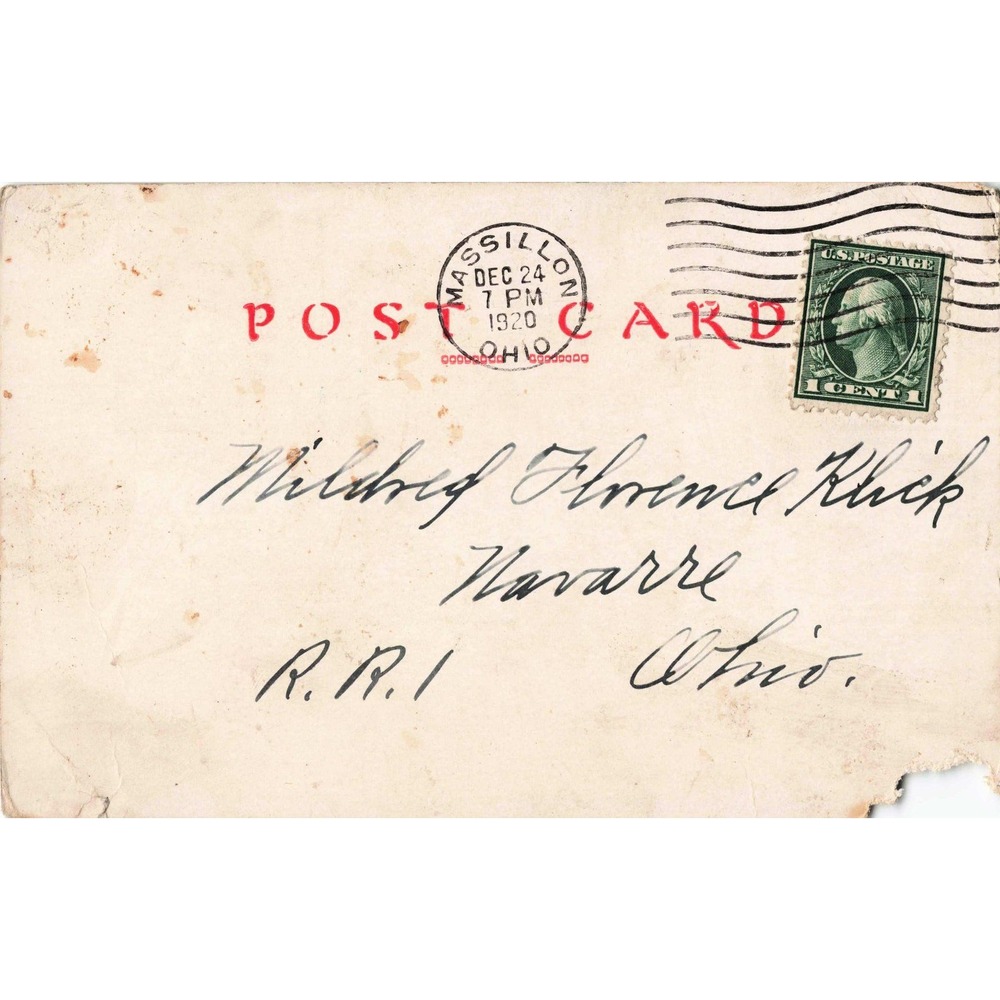 MASSILLON
DEC 24
7 PM
1920
OHIO
U.S. POSTAGE
1 CENT 1
POST CARD
Mildred Florence Klick
Navarre
R. R. 1 Ohio.